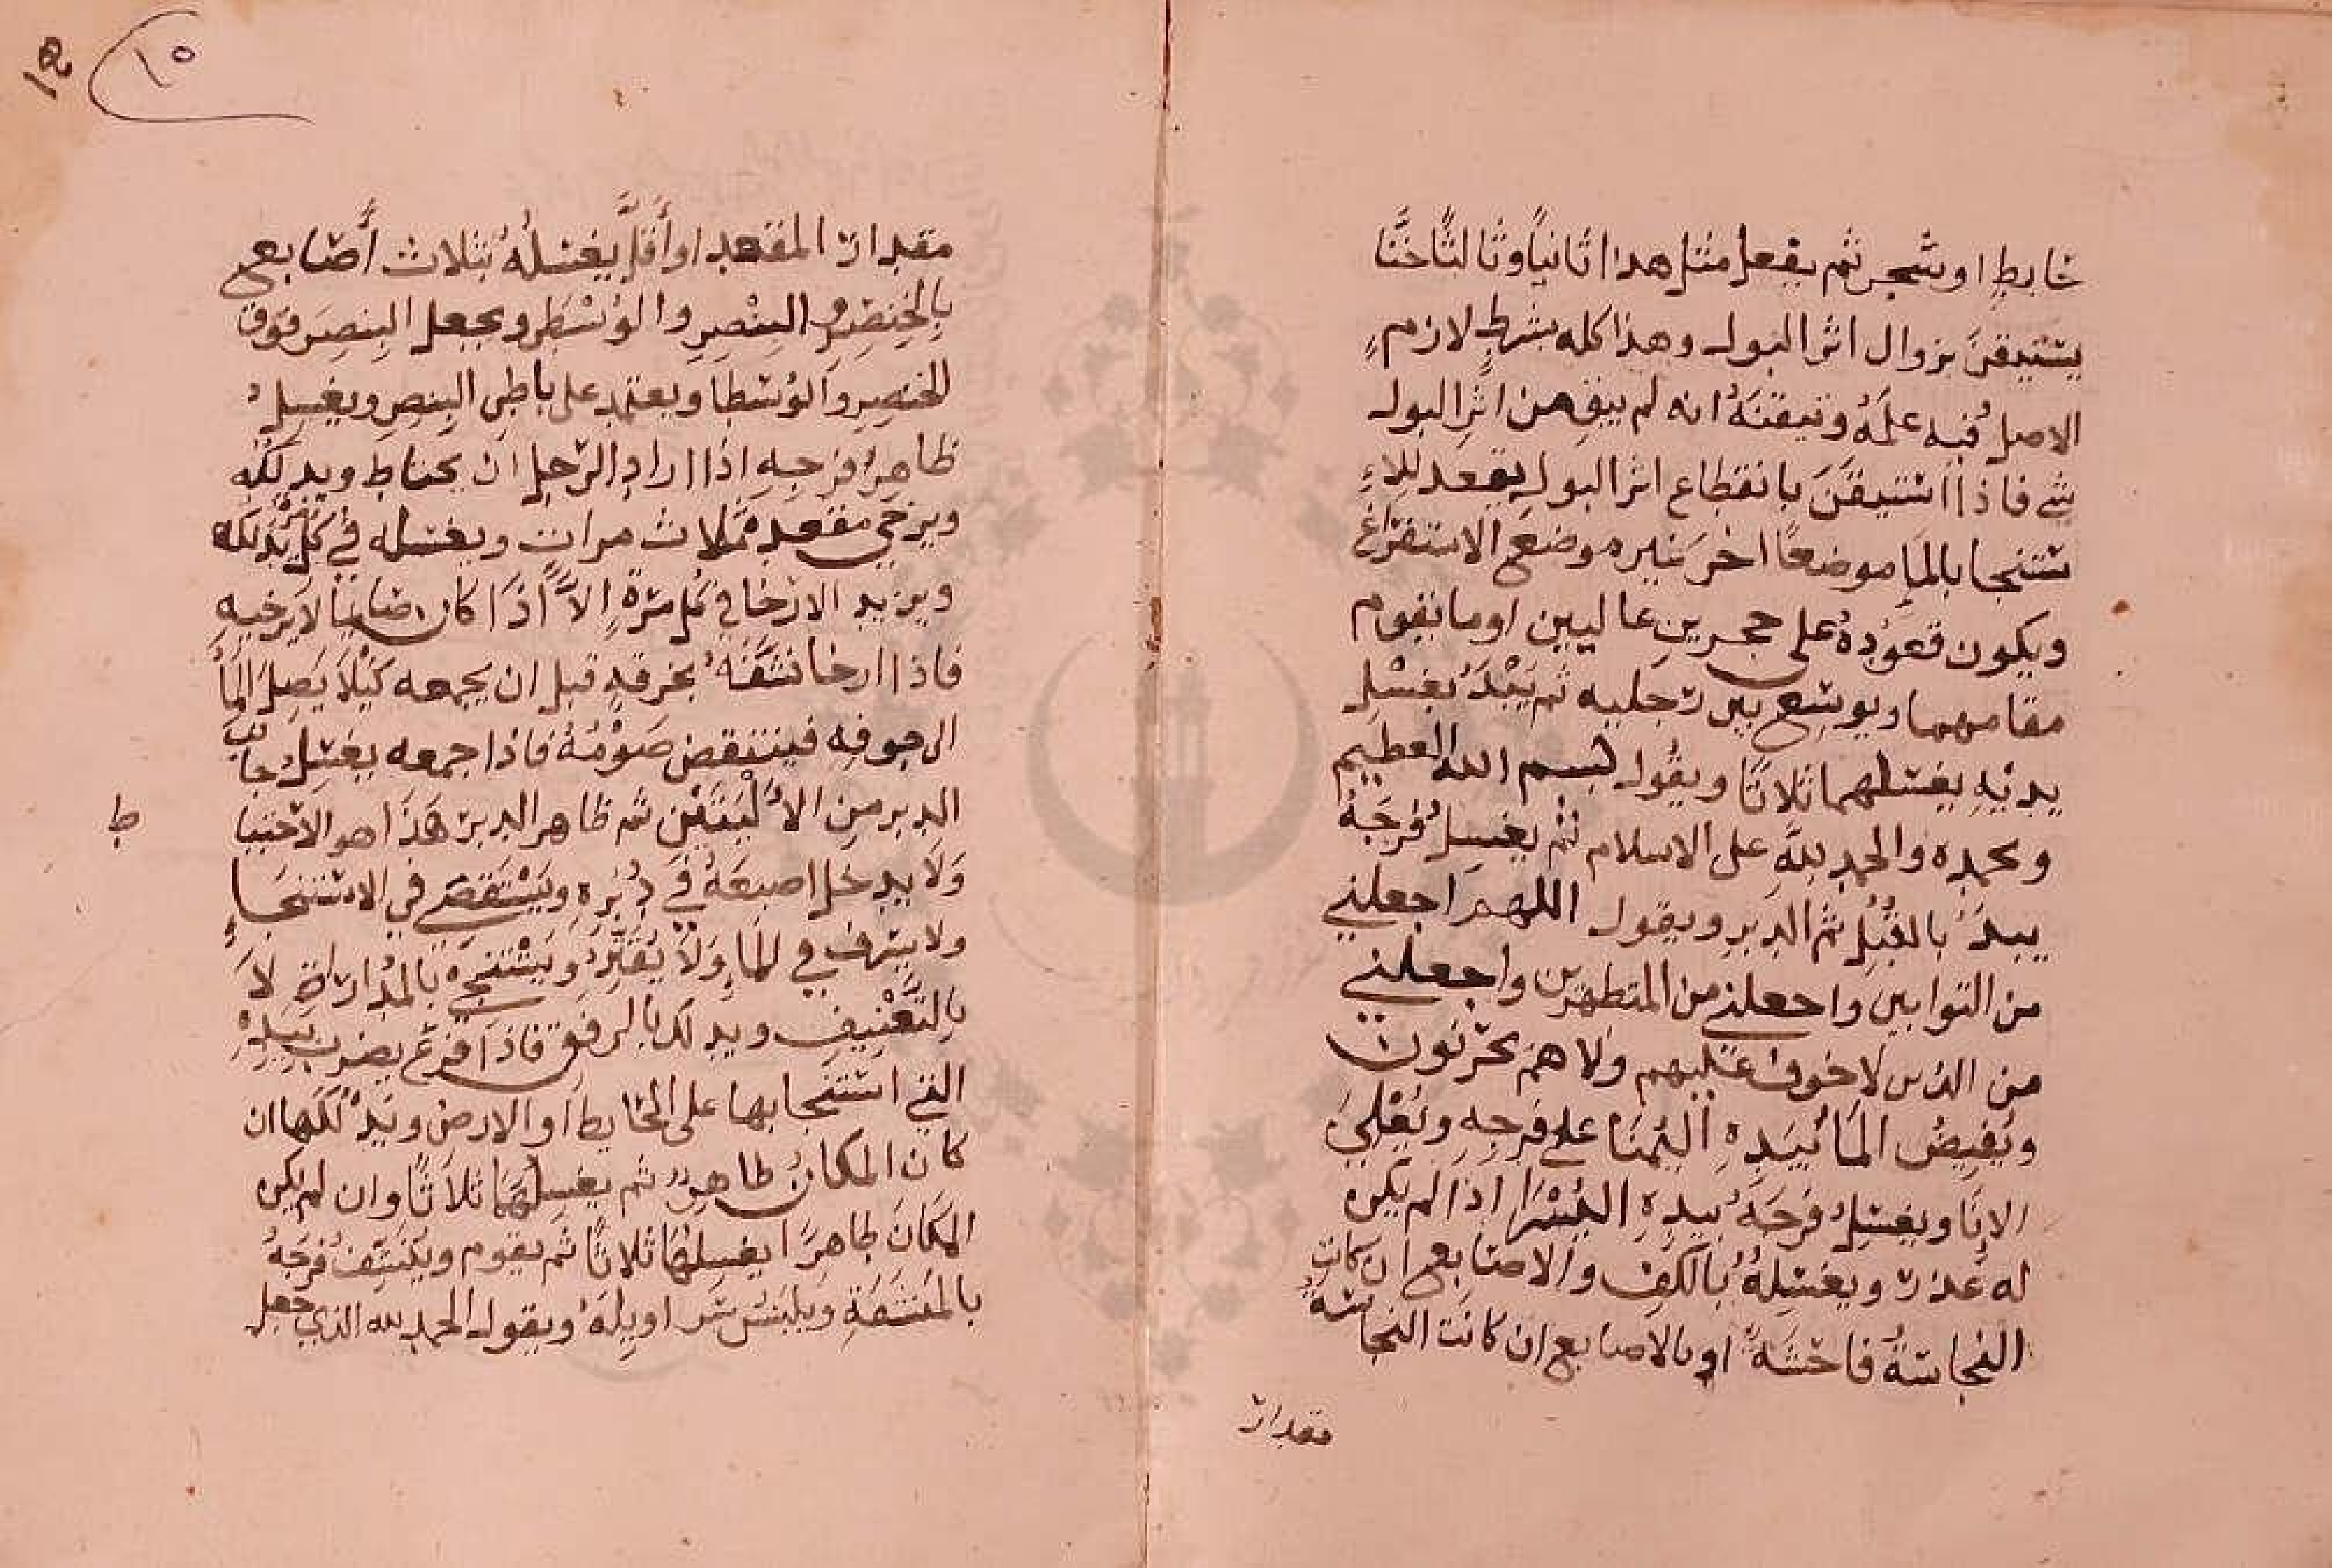 خايطٍ او شجر ثم يفعل مثل هدا ثانياً وثالثاً حتَّا
يستيقنَ بزوال اثر البول وهذا كله بشرطٍ لازمٍ
الاصل فيه علمَهُ وتيقنَهُ انه لم يبقِ من اثرِ البول
شي فاذا استيقَنَ بانقطاع اثر البولِ يقعد للاءِ
ستنجا بالماءِ موضعاً اخرَ غيره موضع الاستفراغ
ويكون قعودُهُ على حجرينِ عاليين او ما يقوم
مقامهما ويوسّع بين رجليه ثم يَبْدَءُ بغسْلِ
يديْهِ يغسلهما ثلاثا ويقول بسم الله العظيم
وبحمده والحمد للهِ على الاسلام ثم يغسلُ فرجَهُ
يبدَءُ بالقبُلِ ثم الدبرِ ويقول اللهمَ اجعلني
من التوابين واجعلني من المتطهرين واجعلني
من الدس لا خوف عليهم ولا هم يحزنون
ويُفيضُ الماءَ بيَدِهِ اليمنَا على فرجِهِ ويُعْلِيَ
الاِنَا ويغسِلُ فرجَهُ بيدِهِ اليُسْرَا اذا لم يكن
له عذرٌ ويغسِلهُ بالكفِ والاصابِع ان كانت
النجاسةُ فاحشَةً او بالاصابع ان كانت النجاسةُ
مقدار
١٥
١٥
مقدار المقعد او أقلَّ يغسلُهُ بثلاث أصَابع
بالخِنصِرِ والبِنْصِرِ والوُسْطَى ويجعل البِنصِرَ فوق
الخنصِرِ والوُسْطا ويعتمد على باطِنِ البنصِرِ ويغسِلُ
ظاهِرُ فرجِهِ اذا اراد الرّجل ان يحتاط ويدلكُه
ويرخي مقعده ثلاث مراتٍ ويغسله في كل مرّةٍ يدلكه
ويزيد الارخا في كل مرّةٍ الاَّ اذا كان صَايمًا لا يرخيهِ
فاذا ارخا نشّفَهُ بخرقةٍ قبل ان يجمعه كَيْلَا يَصِلَ الماءُ
الى جوفهِ فينتقض صَوْمُهُ فاذا جمعه يغسِلُ جانب
الدبر من الاَلْيَتَيْنِ ثم ظاهر الدبر هَذَا هو الاحتيا
ط
وَلا يدخل اصبعَهُ في دُبُرِهِ ويَسْتَقْصِي في الاستنجاءِ
ولا يسرف في الماءِ ولا يُقتِرُ ويَسْتنجي بالمُدارَاةِ لاَ
بالتَّعْنِيفِ ويدلك بالرفق فاذا فرغ يضرب بيدِهِ
التي استنجا بها على الحايط او الارض ويَدْلُكها ان
كان المكانُ طاهرٌ ثم يغسِلُهَا ثلاَثاً وان لم يكن
المكَانَ طاهِرًا يغسِلهَا ثلاثاً ثم يقوم ويُنَشِّفُ فرجَهُ
بالمنشفَةِ ويلبَسُ سَراويلَهُ ويقول الحمد لله الذي جعل